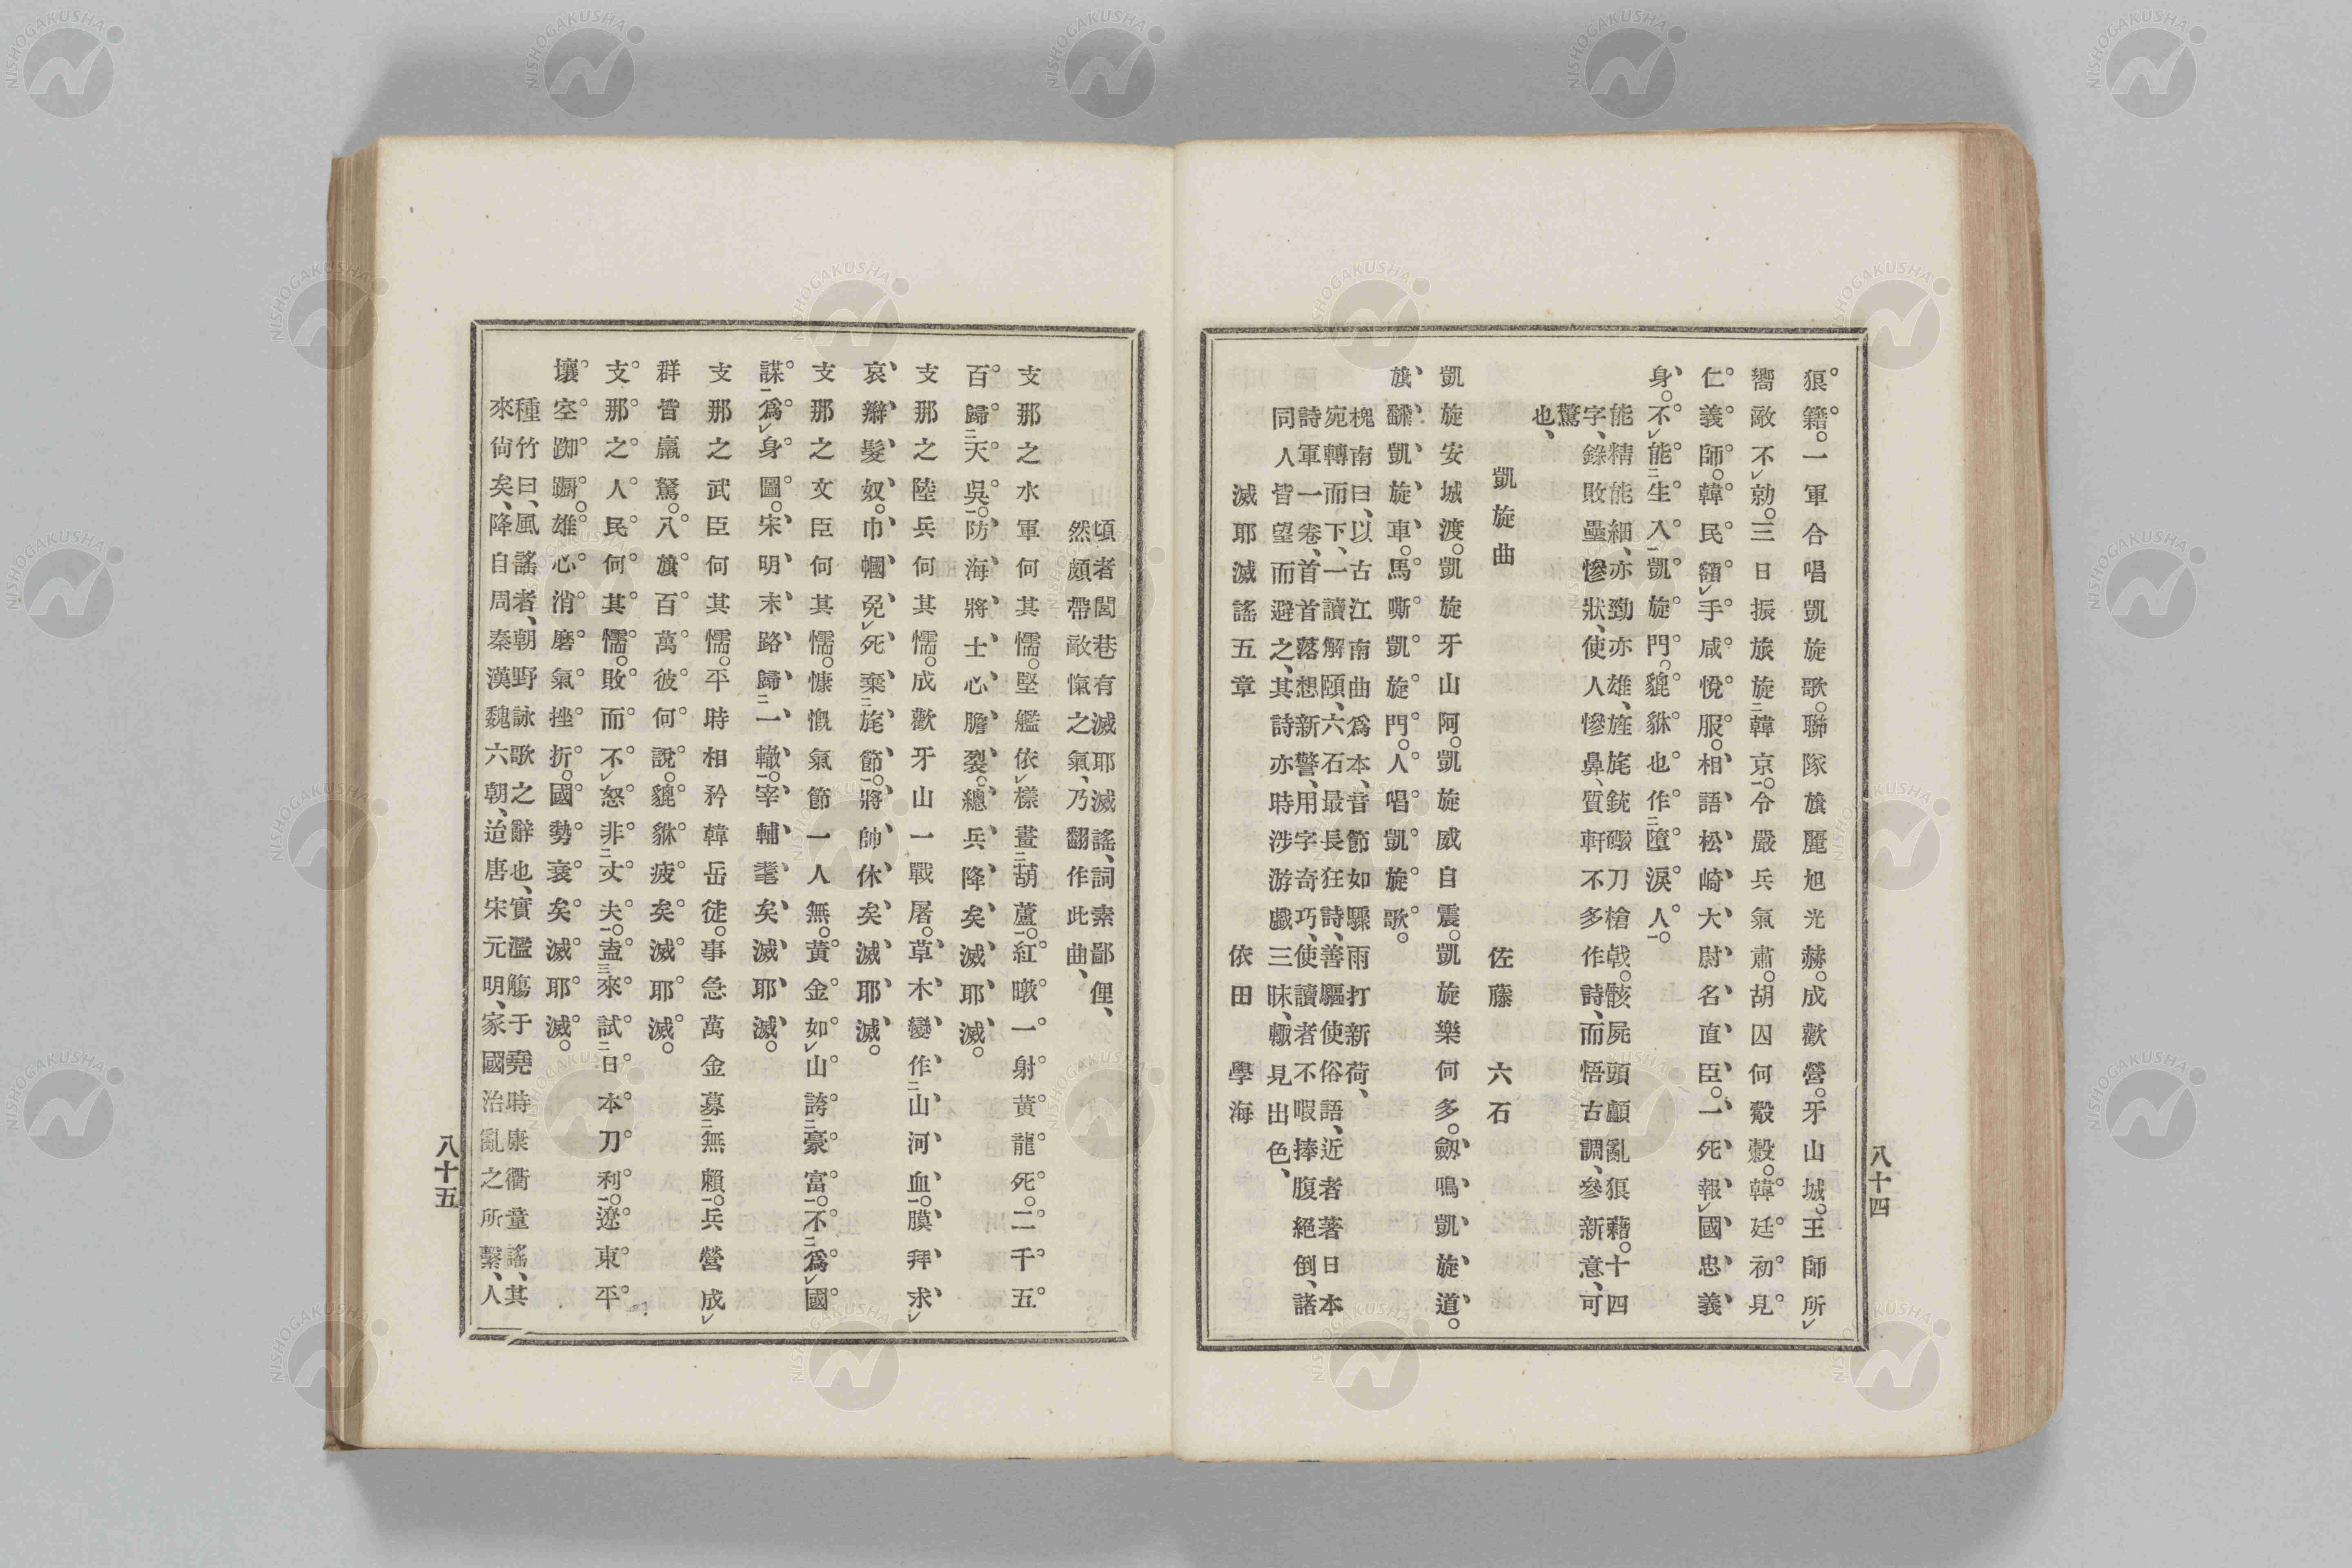 狼籍。一軍合唱凱旋歌。聯隊旗麗旭光赫。成歡營。牙山城。王師所レ
嚮敵不レ勍。三日振旅旋二韓京一。令嚴兵氣肅。胡囚何觳觫。韓廷初見
仁義師。韓民額レ手咸悅服。相語松崎大尉名直臣。一死報レ國忠義
身。不レ能二生入一凱旋門。貔貅也作二墮淚人一。
能精能細、亦勁亦雄、旌旄銃礮刀槍戟。骸屍頭顱亂狼藉。十四
字、錄敗壘慘狀、使人慘鼻、質軒不多作詩、而悟古調、參新意、可
驚
也、
凱旋曲 佐藤六石
凱旋安城渡。凱旋牙山阿。凱旋威自震。凱旋樂何多。劔鳴凱旋道。
旗飜凱旋車。馬嘶凱旋門。人唱凱旋歌。
槐南曰、以古江南曲爲本、音節如驟雨打新荷、
宛轉而下、一讀解頤、六石最長狂詩、善驅使俗語、近者著日本
詩軍一卷、首首落想新警、用字奇巧、使讀者不暇捧腹絕倒、諸
同人皆望而避之、其詩亦時涉游戲三昧、輙見出色、
滅耶滅謠五章 依田學海
八十四
頃者閭巷有滅耶滅謠、詞素鄙俚、
然頗帶敵愾之氣、乃翻作此曲、
支那之水軍何其懦。堅艦依レ樣畫二葫蘆一。紅暾一射黃龍死。二千五
百歸二天吳一。防海將士心膽裂。總兵降矣滅耶滅。
支那之陸兵何其懦。成歡牙山一戰屠。草木變作二山河血一。膜拜求レ
哀辮髮奴。巾幗免レ死棄二旄節一。將帥休矣滅耶滅。
支那之文臣何其懦。慷慨氣節一人無。黃金如レ山誇二豪富一。不二爲レ國
謀一爲レ身圖。宋明末路歸二一轍一。宰輔耄矣滅耶滅。
支那之武臣何其懦。平時相矜韓岳徒。事急萬金募二無賴一。兵營成レ
群皆羸駑。八旗百萬彼何說。貔貅疲矣滅耶滅。
支那之人民何其懦。敗而不レ怒非二丈夫一。盍三來試二日本刀利一。遼東平
壤空踟躕。雄心消磨氣挫折。國勢衰矣滅耶滅。
種竹曰、風謠者、朝野詠歌之辭也、實濫觴于堯時康衢童謠、其
來尙矣、降自周秦漢魏六朝、迨唐宋元明、家國治亂之所繫、人
八十五